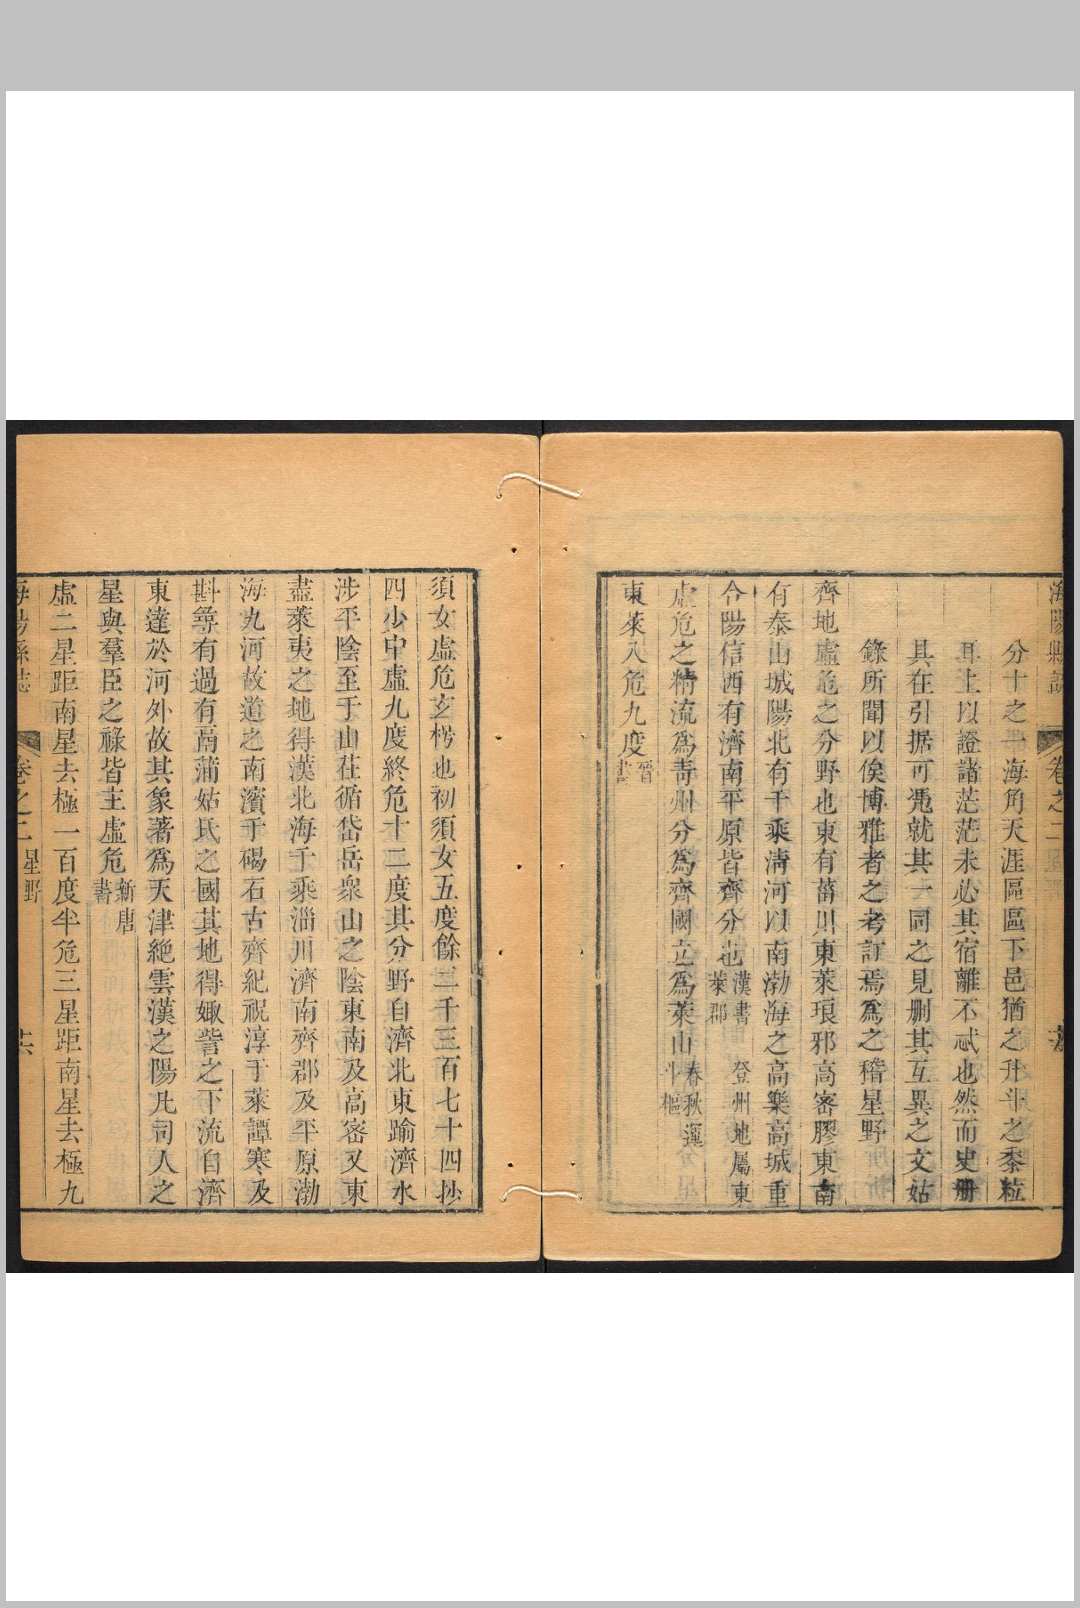 海陽縣誌 卷之二
分寸之一海角天涯區區下邑猶之升斗之黍粒
耳上以證諸茫茫未必其宿離不忒也然而史册
其在引据可凴就其一同之見删其互異之文姑
錄所聞以俟博雅者之考訂焉爲之稽星野
齊地虛危之分野也東有菑川東萊琅邪高密膠東南
有泰山城陽北有千乘淸河以南渤海之高樂高城重
合陽信西有濟南平原皆齊分也漢書 登州地屬東
萊郡
虛危之精流爲靑州分爲齊國立爲萊山春秋運
斗樞
東萊入危九度晉
書
須女虛危玄枵也初須女五度餘二千三百七十四抄
四少中虛九度終危十二度其分野自濟北東踰濟水
涉平陰至于山茌循岱岳衆山之陰東南及高密又東
盡萊夷之地得漢北海千乘淄川濟南齊郡及平原渤
海九河故道之南濱于碣石古齊紀祝淳于萊譚寒及
斟尋有過有鬲蒲姑氏之國其地得娵訾之下流自濟
東達於河外故其象著爲天津絶雲漢之陽凡司人之
星與羣臣之祿皆主虛危新唐
書
虛二星距南星去極一百度半危三星距南星去極九
海陽縣誌 卷之二 星野 十六